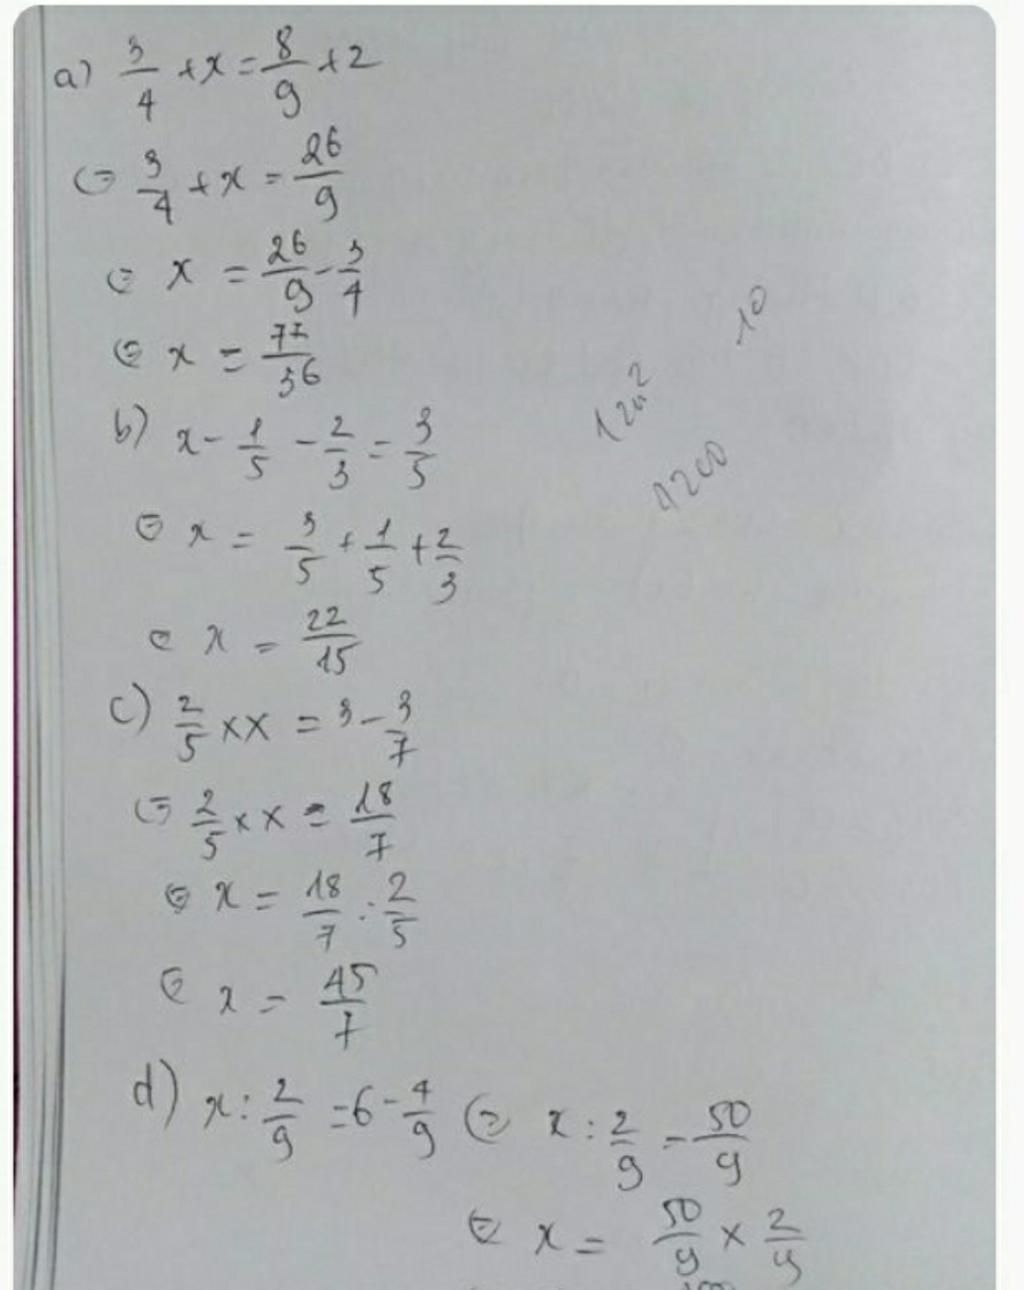 a) 3/4 + x = 8/9 + 2
⇔ 3/4 + x = 26/9
⇔ x = 26/9 - 3/4
⇔ x = 77/36
b) x - 1/5 - 2/3 = 3/5
⇔ x = 3/5 + 1/5 + 2/3
⇔ x = 22/15
c) 2/5 × x = 3 - 3/7
⇔ 2/5 × x = 18/7
⇔ x = 18/7 : 2/5
⇔ x = 45/7
d) x : 2/9 = 6 - 4/9 ⇔ x : 2/9 = 50/9
⇔ x = 50/9 × 2/9
10
1200